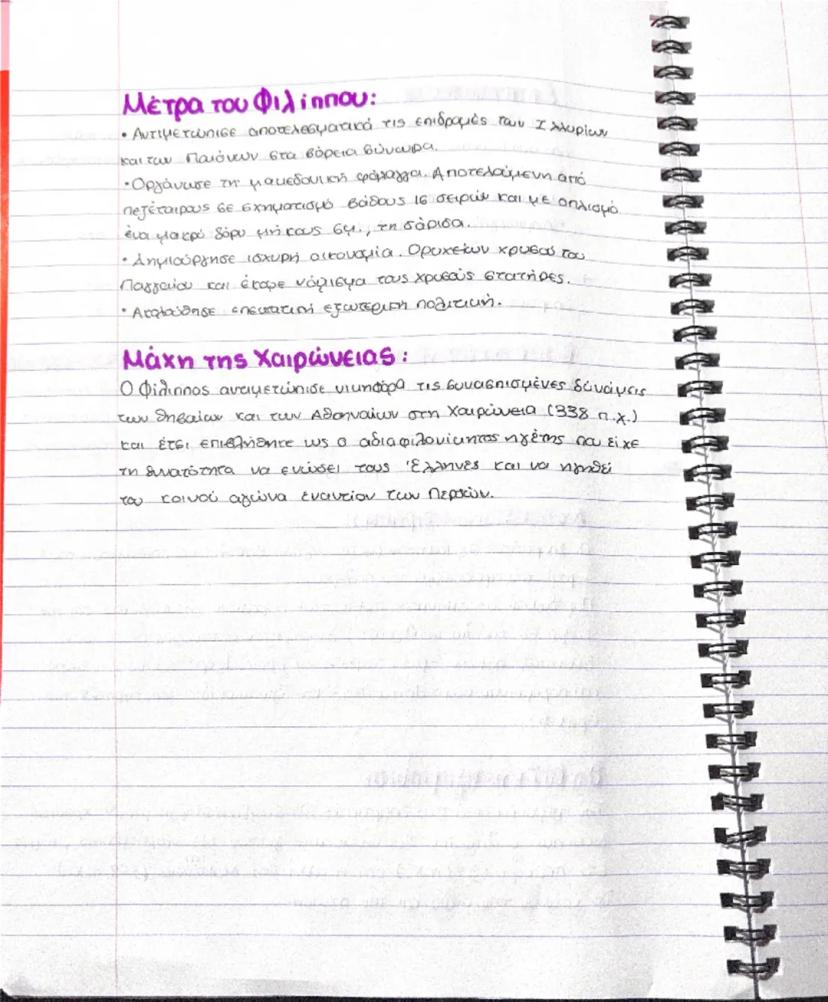 Μέτρα του Φιλίππου:
• Αντιμετώπισε αποτελεσματικά τις επιδρομές των Ιλλυρίων
και των Παιόνων στα βόρεια σύνωρα.
• Οργάνωσε τη μακεδονική φάλαγγα. Αποτελούμενη από
πεζέταιρους σε σχηματισμό βάθους 16 σειρών και με οπλισμό
ένα μακρύ δόρυ μήκους 6μ., τη σάρισα.
• Δημιούργησε ισχυρή οικονομία. Ορυχείων χρυσού του
Παγγαίου και έκοψε νόμισμα τους χρυσούς στατήρες.
• Ακολούθησε επεκτατική εξωτερική πολιτική.
Μάχη της Χαιρώνειας:
Ο Φίλιππος αντιμετώπισε νικηφόρα τις συνασπισμένες δυνάμεις
των Θηβαίων και των Αθηναίων στη Χαιρώνεια (338 π.χ.)
και έτσι επιβλήθηκε ως ο αδιαφιλονίκητος ηγέτης που είχε
τη δυνατότητα να ενώσει τους Έλληνες και να ηγηθεί
του κοινού αγώνα εναντίον των Περσών.